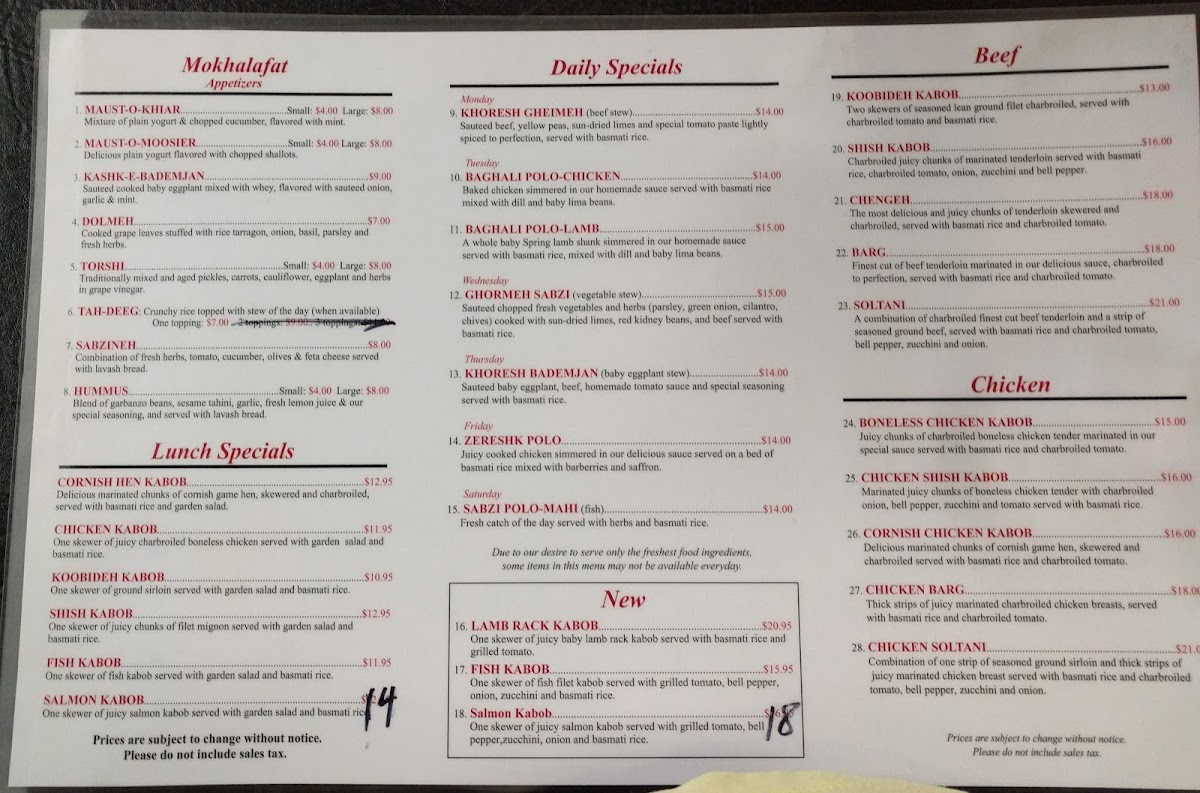 Mokhalafat
Appetizers
1. MAUST-O-KHIAR..........Small: $4.00 Large: $8.00
Mixture of plain yogurt & chopped cucumber, flavored with mint.
2. MAUST-O-MOOSIER..........Small: $4.00 Large: $8.00
Delicious plain yogurt flavored with chopped shallots.
3. KASHK-E-BADEMJAN..........$9.00
Sauteed cooked baby eggplant mixed with whey, flavored with sauteed onion,
garlic & mint.
4. DOLMEH..........$7.00
Cooked grape leaves stuffed with rice tarragon, onion, basil, parsley and
fresh herbs.
5. TORSHI..........Small: $4.00 Large: $8.00
Traditionally mixed and aged pickles, carrots, cauliflower, eggplant and herbs
in grape vinegar.
6. TAH-DEEG: Crunchy rice topped with stew of the day (when available)
One topping: $7.00 .. 2 toppings: $9.00. 3 toppings:
7. SABZINEH..........$8.00
Combination of fresh herbs, tomato, cucumber, olives & feta cheese served
with lavash bread.
8. HUMMUS..........Small: $4.00 Large: $8.00
Blend of garbanzo beans, sesame tahini, garlic, fresh lemon juice & our
special seasoning, and served with lavash bread.
Lunch Specials
CORNISH HEN KABOB..........$12.95
Delicious marinated chunks of cornish game hen, skewered and charbroiled,
served with basmati rice and garden salad.
CHICKEN KABOB..........$11.95
One skewer of juicy charbroiled boneless chicken served with garden salad and
basmati rice.
KOOBIDEH KABOB..........$10.95
One skewer of ground sirloin served with garden salad and basmati rice.
SHISH KABOB..........$12.95
One skewer of juicy chunks of filet mignon served with garden salad and
basmati rice.
FISH KABOB..........$11.95
One skewer of fish kabob served with garden salad and basmati rice.
SALMON KABOB..........14
One skewer of juicy salmon kabob served with garden salad and basmati rice
Prices are subject to change without notice.
Please do not include sales tax.
Daily Specials
Monday
9. KHORESH GHEIMEH (beef stew)..........$14.00
Sauteed beef, yellow peas, sun-dried limes and special tomato paste lightly
spiced to perfection, served with basmati rice.
Tuesday
10. BAGHALI POLO-CHICKEN..........$14.00
Baked chicken simmered in our homemade sauce served with basmati rice
mixed with dill and baby lima beans.
11. BAGHALI POLO-LAMB..........$15.00
A whole baby Spring lamb shank simmered in our homemade sauce
served with basmati rice, mixed with dill and baby lima beans.
Wednesday
12. GHORMEH SABZI (vegetable stew)..........$15.00
Sauteed chopped fresh vegetables and herbs (parsley, green onion, cilantro,
chives) cooked with sun-dried limes, red kidney beans, and beef served with
basmati rice.
Thursday
13. KHORESH BADEMJAN (baby eggplant stew)..........$14.00
Sauteed baby eggplant, beef, homemade tomato sauce and special seasoning
served with basmati rice.
Friday
14. ZERESHK POLO..........$14.00
Juicy cooked chicken simmered in our delicious sauce served on a bed of
basmati rice mixed with barberries and saffron.
Saturday
15. SABZI POLO-MAHI (fish)..........$14.00
Fresh catch of the day served with herbs and basmati rice.
Due to our desire to serve only the freshest food ingredients,
some items in this menu may not be available everyday.
New
16. LAMB RACK KABOB..........$20.95
One skewer of juicy baby lamb rack kabob served with basmati rice and
grilled tomato.
17. FISH KABOB..........$15.95
One skewer of fish filet kabob served with grilled tomato, bell pepper,
onion, zucchini and basmati rice.
18. Salmon Kabob..........18
One skewer of juicy salmon kabob served with grilled tomato, bell
pepper,zucchini, onion and basmati rice.
Beef
19. KOOBIDEH KABOB..........$13.00
Two skewers of seasoned lean ground filet charbroiled, served with
charbroiled tomato and basmati rice.
20. SHISH KABOB..........$16.00
Charbroiled juicy chunks of marinated tenderloin served with basmati
rice, charbroiled tomato, onion, zucchini and bell pepper.
21. CHENGEH..........$18.00
The most delicious and juicy chunks of tenderloin skewered and
charbroiled, served with basmati rice and charbroiled tomato.
22. BARG..........$18.00
Finest cut of beef tenderloin marinated in our delicious sauce, charbroiled
to perfection, served with basmati rice and charbroiled tomato.
23. SOLTANI..........$21.00
A combination of charbroiled finest cut beef tenderloin and a strip of
seasoned ground beef, served with basmati rice and charbroiled tomato,
bell pepper, zucchini and onion.
Chicken
24. BONELESS CHICKEN KABOB..........$15.00
Juicy chunks of charbroiled boneless chicken tender marinated in our
special sauce served with basmati rice and charbroiled tomato.
25. CHICKEN SHISH KABOB..........$16.00
Marinated juicy chunks of boneless chicken tender with charbroiled
onion, bell pepper, zucchini and tomato served with basmati rice.
26. CORNISH CHICKEN KABOB..........$16.00
Delicious marinated chunks of cornish game hen, skewered and
charbroiled with basmati rice and charbroiled tomato.
27. CHICKEN BARG..........$18.00
Thick strips of juicy marinated charbroiled chicken breasts, served
with basmati rice and charbroiled tomato.
28. CHICKEN SOLTANI..........$21.0
Combination of one strip of seasoned ground sirloin and thick strips of
juicy marinated chicken breast served with basmati rice and charbroiled
tomato, bell pepper, zucchini and onion.
Prices are subject to change without notice.
Please do not include sales tax.